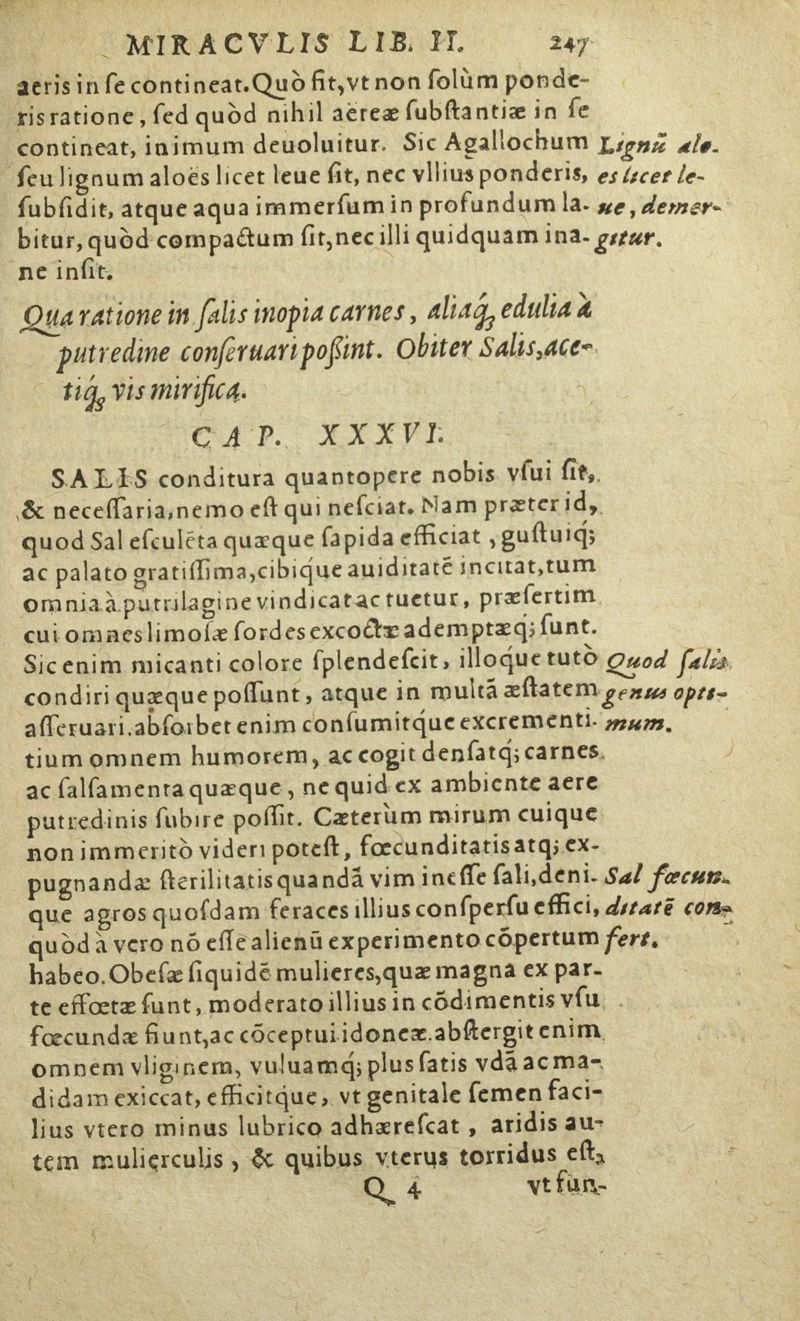 MIRACVLIS LIB. II. 247
aeris in ſe contineat. Quò fit, vt non ſolùm ponde-
ris ratione, ſed quòd nihil aëreæ ſubſtantiæ in ſe
contineat, in imum deuoluitur. Sic Agallochum Lignũ alo-
ſeu lignum aloës licet leue ſit, nec vllius ponderis, es licet le-
ſubſidit, atque aqua immerſum in profundum la- ue, demer-
bitur, quòd compactum ſit, nec illi quidquam ina- gitur.
ne inſit.
Qua ratione in ſalis inopia carnes, aliaq́; edulia à
putredine conſeruari poßint. Obiter Salis, ace-
tiq́; vis mirifica.
CAP. XXXVI.
SALIS conditura quantopere nobis vſui ſit,
& neceſſaria, nemo eſt qui neſciat. Nam præter id,
quod Sal eſculẽta quæque ſapida efficiat, guſtuiq́;
ac palato gratiſſima, cibique auiditatẽ incitat, tum
omnia à putrilagine vindicat ac tuetur, præſertim
cui omnes limoſæ ſordes excoctæ ademptæq́; ſunt.
Sic enim micanti colore ſplendeſcit, illoque tutò Quod ſalis
condiri quæque poſſunt, atque in multã æſtatem genus opti-
aſſeruari. abſorbet enim conſumitque excrementi- mum.
tium omnem humorem, ac cogit denſatq́; carnes
ac ſalſamenta quæque, ne quid ex ambiente aere
putredinis ſubire poſſit. Cæterùm mirum cuique
non immeritò videri poteſt, fœcunditatis atq́; ex-
pugnandæ ſterilitatis quandã vim ineſſe ſali, deni- Sal fœcun-
que agros quoſdam feraces illius conſperſu effici, ditatẽ con-
quòd à vero nõ eſſe alienũ experimento cõpertum fert.
habeo. Obeſæ ſiquidẽ mulieres, quæ magna ex par-
te effœtæ ſunt, moderato illius in cõdimentis vſu
fœcundæ fiunt, ac cõceptui idoneæ. abſtergit enim
omnem vliginem, vuluamq́; plus ſatis vdã ac ma-
didam exiccat, efficitque, vt genitale ſemen faci-
lius vtero minus lubrico adhæreſcat, aridis au-
tem mulierculis, & quibus vterus torridus eſt,
Q 4 vt fun-